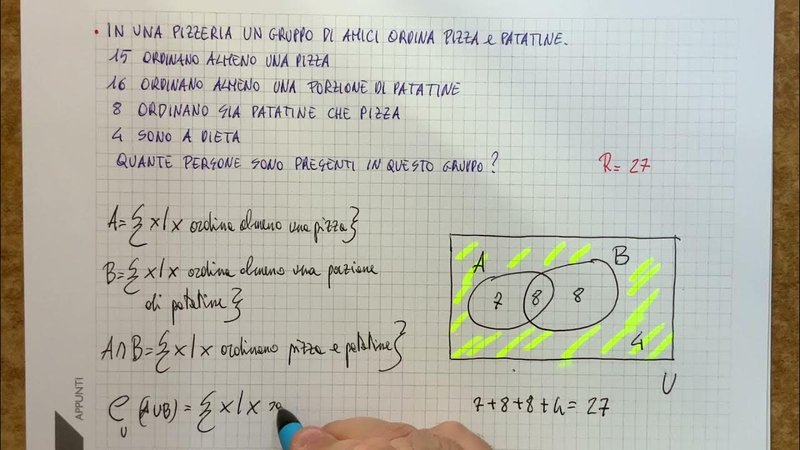 • IN UNA PIZZERIA UN GRUPPO DI AMICI ORDINA PIZZA e PATATINE.
15 ORDINANO ALMENO UNA PIZZA
16 ORDINANO ALMENO UNA PORZIONE DI PATATINE
8 ORDINANO SIA PATATINE CHE PIZZA
4 SONO A DIETA
QUANTE PERSONE SONO PRESENTI IN QUESTO GRUPPO?
R = 27
A = { x / x ordina almeno una pizza }
B = { x / x ordina almeno una porzione
di patatine }
A ∩ B = { x / x ordinano pizza e patatine }
C
U
(A ∪ B) = { x / x
A
B
7
8
8
4
U
7+8+8+4 = 27
APPUNTI